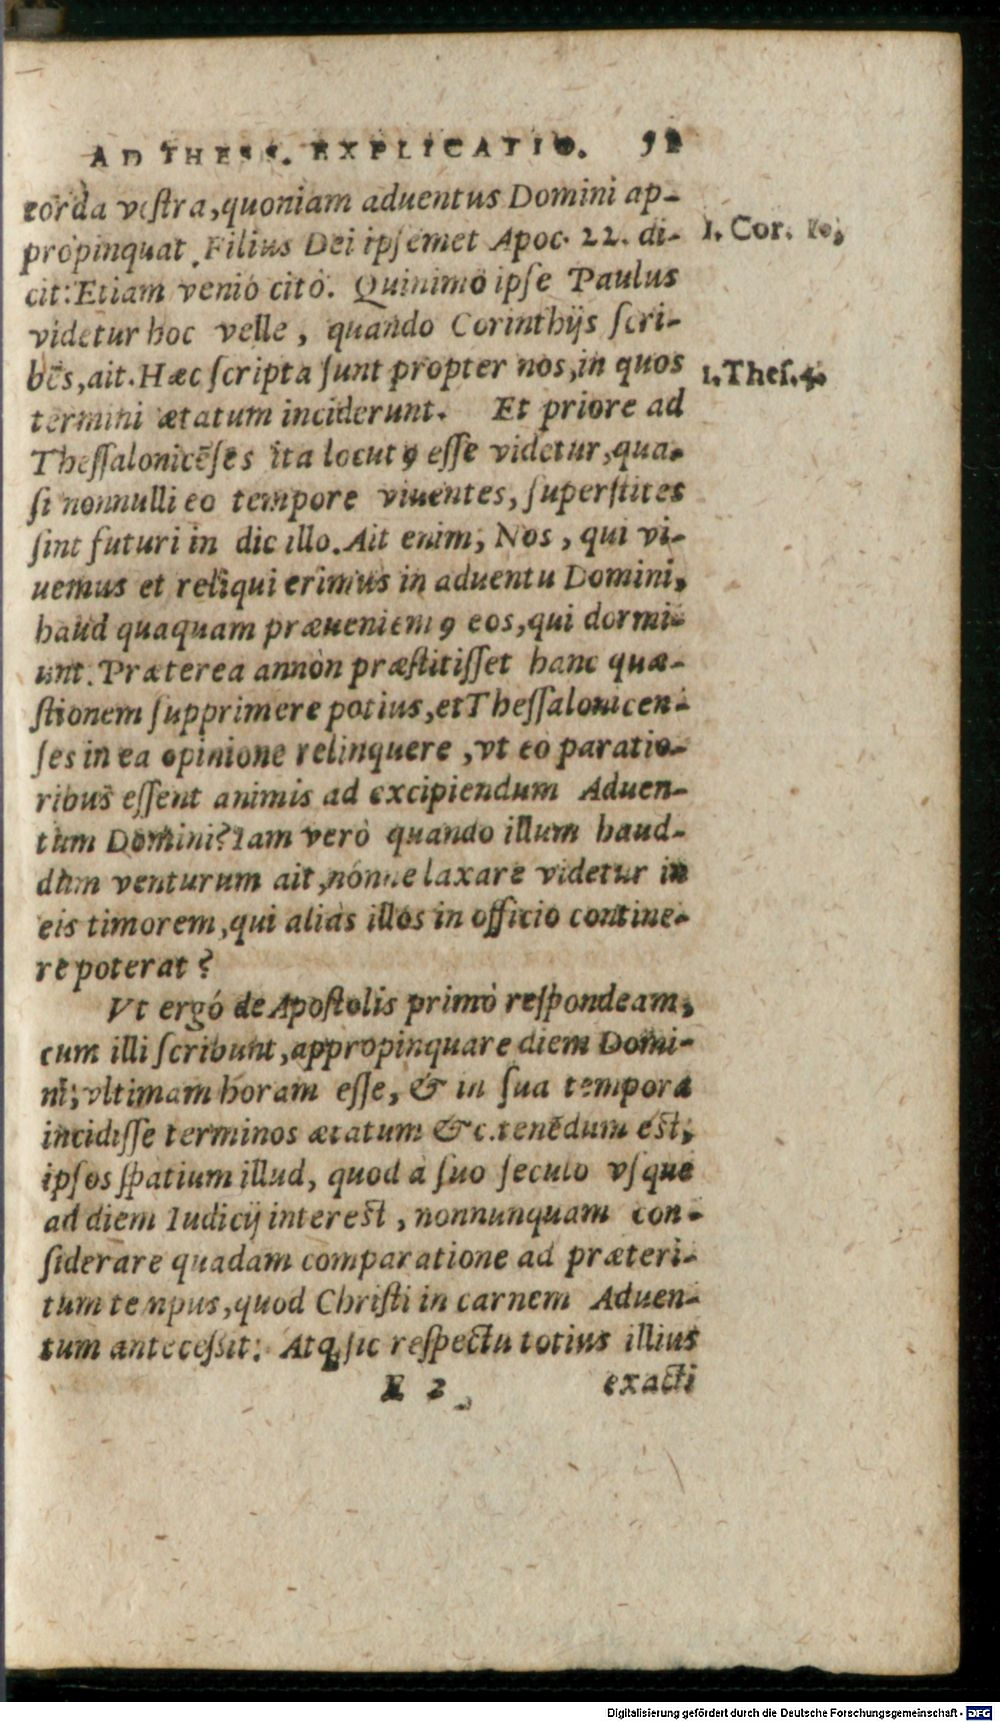 AD THESS. EXPLICATIO. 52
corda vestra, quoniam aduentus Domini ap-
propinquat. Filius Dei ipsemet Apoc. 22. di-
1. Cor. 10,
cit: Etiam venio citò. Quinimò ipse Paulus
videtur hoc velle, quando Corinthijs scri-
bēs, ait. Hæc scripta sunt propter nos, in quos
1. Thes. 4.
termini ætatum inciderunt. Et priore ad
Thessalonicēses ita locutꝰ esse videtur, qua-
si nonnulli eo tempore viuentes, superstites
sint futuri in die illo. Ait enim, Nos, qui vi-
uemus et reliqui erimus in aduentu Domini,
haud quaquam præueniemꝰ eos, qui dormi-
unt. Præterea annon præstitisset hanc quæ-
stionem supprimere potius, et Thessalonicen-
ses in ea opinione relinquere, vt eo paratio-
ribus essent animis ad excipiendum Aduen-
tum Domini? Iam verò quando illum haud-
dum venturum ait, nónne laxare videtur in
eis timorem, qui aliàs illos in officio contine-
re poterat?
Vt ergó de Apostolis primò respondeam,
cum illi scribunt, appropinquare diem Domi-
ni; vltimam horam esse, & in sua tempora
incidisse terminos ætatum &c. tenēdum est,
ipsos spatium illud, quod à suo seculo vsque
ad diem Iudicij interest, nonnunquam con-
siderare quadam comparatione ad præteri-
tum tempus, quod Christi in carnem Aduen-
tum antecessit: Atq; sic respectu totius illius
E 2 exacti
Digitalisierung gefördert durch die Deutsche Forschungsgemeinschaft - DFG